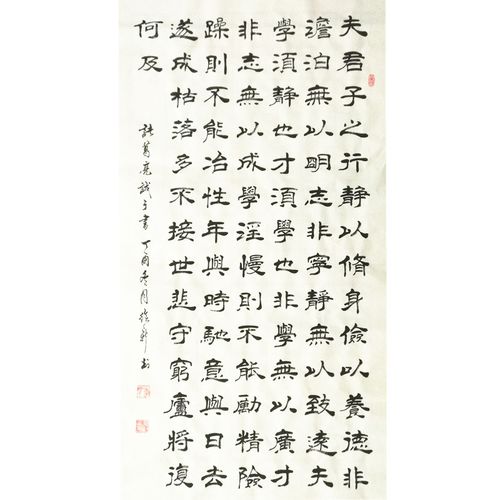 夫君子之行靜以脩身儉以養德非
澹泊無以明志非寧靜無以致遠夫
學須靜也才須學也非學無以廣才
非志無以成學淫慢則不能勵精險
躁則不能冶性年與時馳意與日去
遂成枯落多不接世悲守窮廬將復
何及
諸葛亮誡子書丁酉冬月